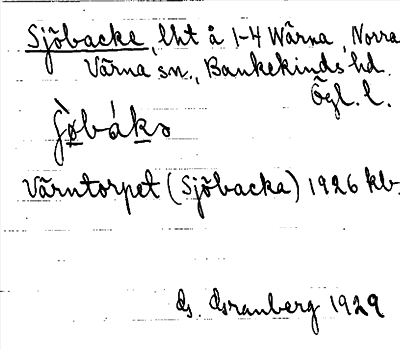 Sjöbacke, lht å 1-4 Värna, Norra
Värna sn., Bankekinds hd.
Ögl. l.
Värntorpet (Sjöbacka) 1926 kb.
G. Granberg 1929